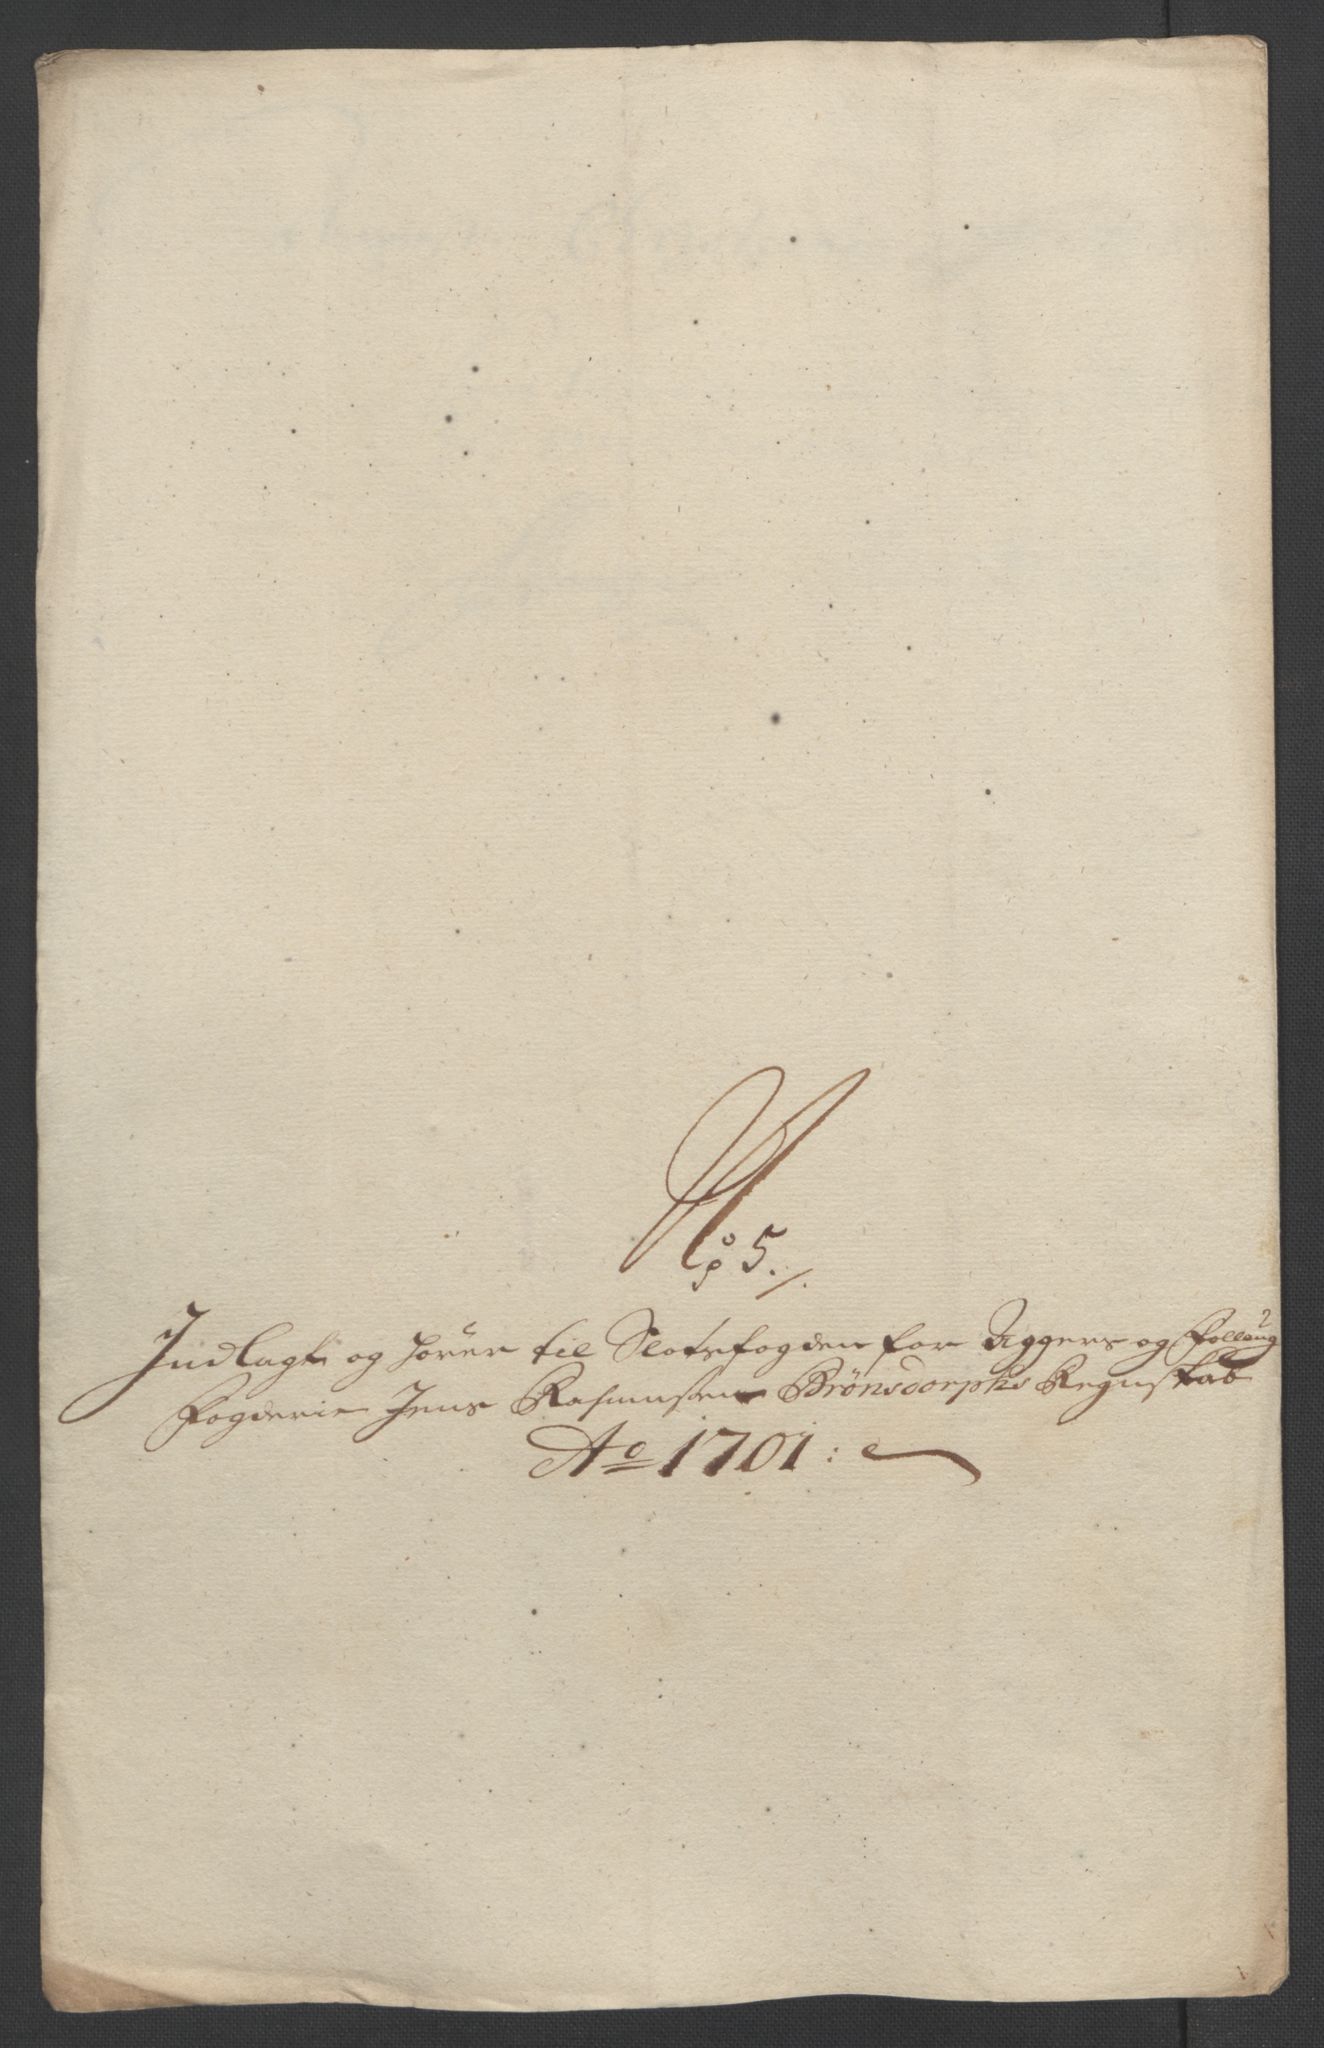 No 5./.
Indlagt og hörer til Slotsfogden for Aggers og Folloug
Fogderie Jens Rasmussen Brönsdorphs Regnskab
Ao 1701: